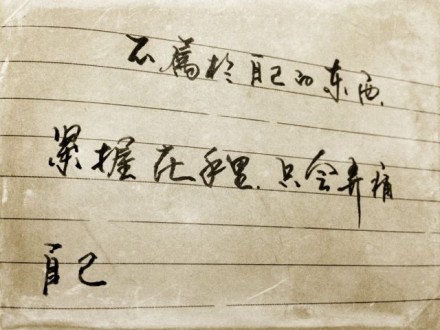 不属於自己的东西,
紧握在手里,只会弄痛
自己